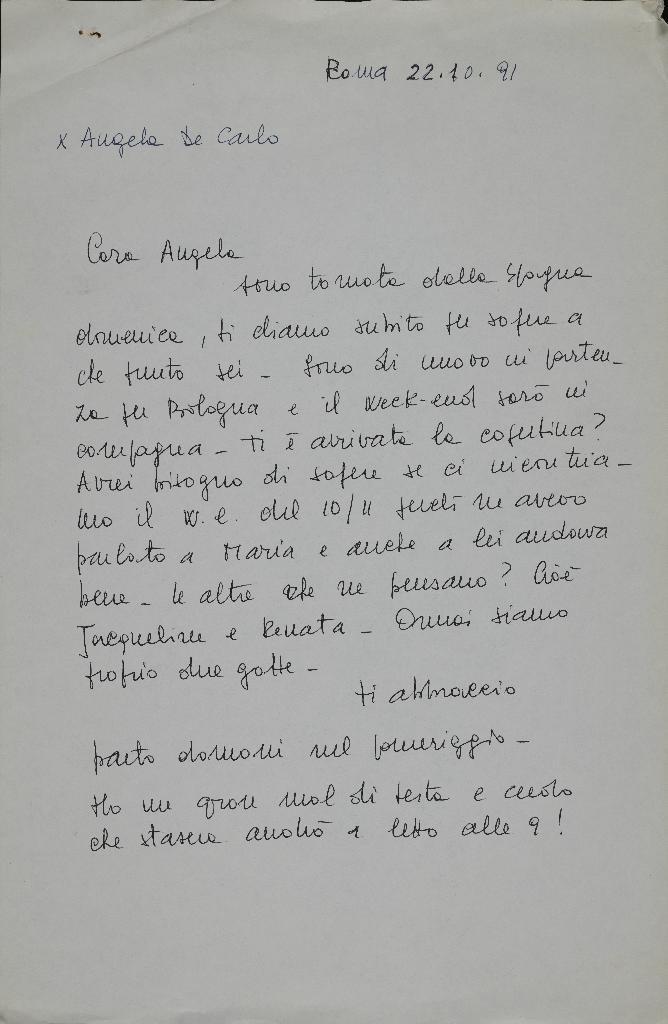 Roma 22.10.91
x Angela De Carlo
Cara Angela
sono tornata dalla Spagna
domenica, ti chiamo subito per sapere a
che punto sei - Sono di nuovo in parten-
za per Bologna e il week-end sarò in
campagna - ti è arrivata la copertina?
Avrei bisogno di sapere se ci incontria-
mo il w.e. del 10/11 perché ne avevo
parlato a Maria e anche a lei andava
bene - le altre che ne pensano? Cioè
Jacqueline e Renata - Ormai siamo
proprio due gatte -
ti abbraccio
parto domani nel pomeriggio -
Ho un gran mal di testa e credo
che stasera andrò a letto alle 9!